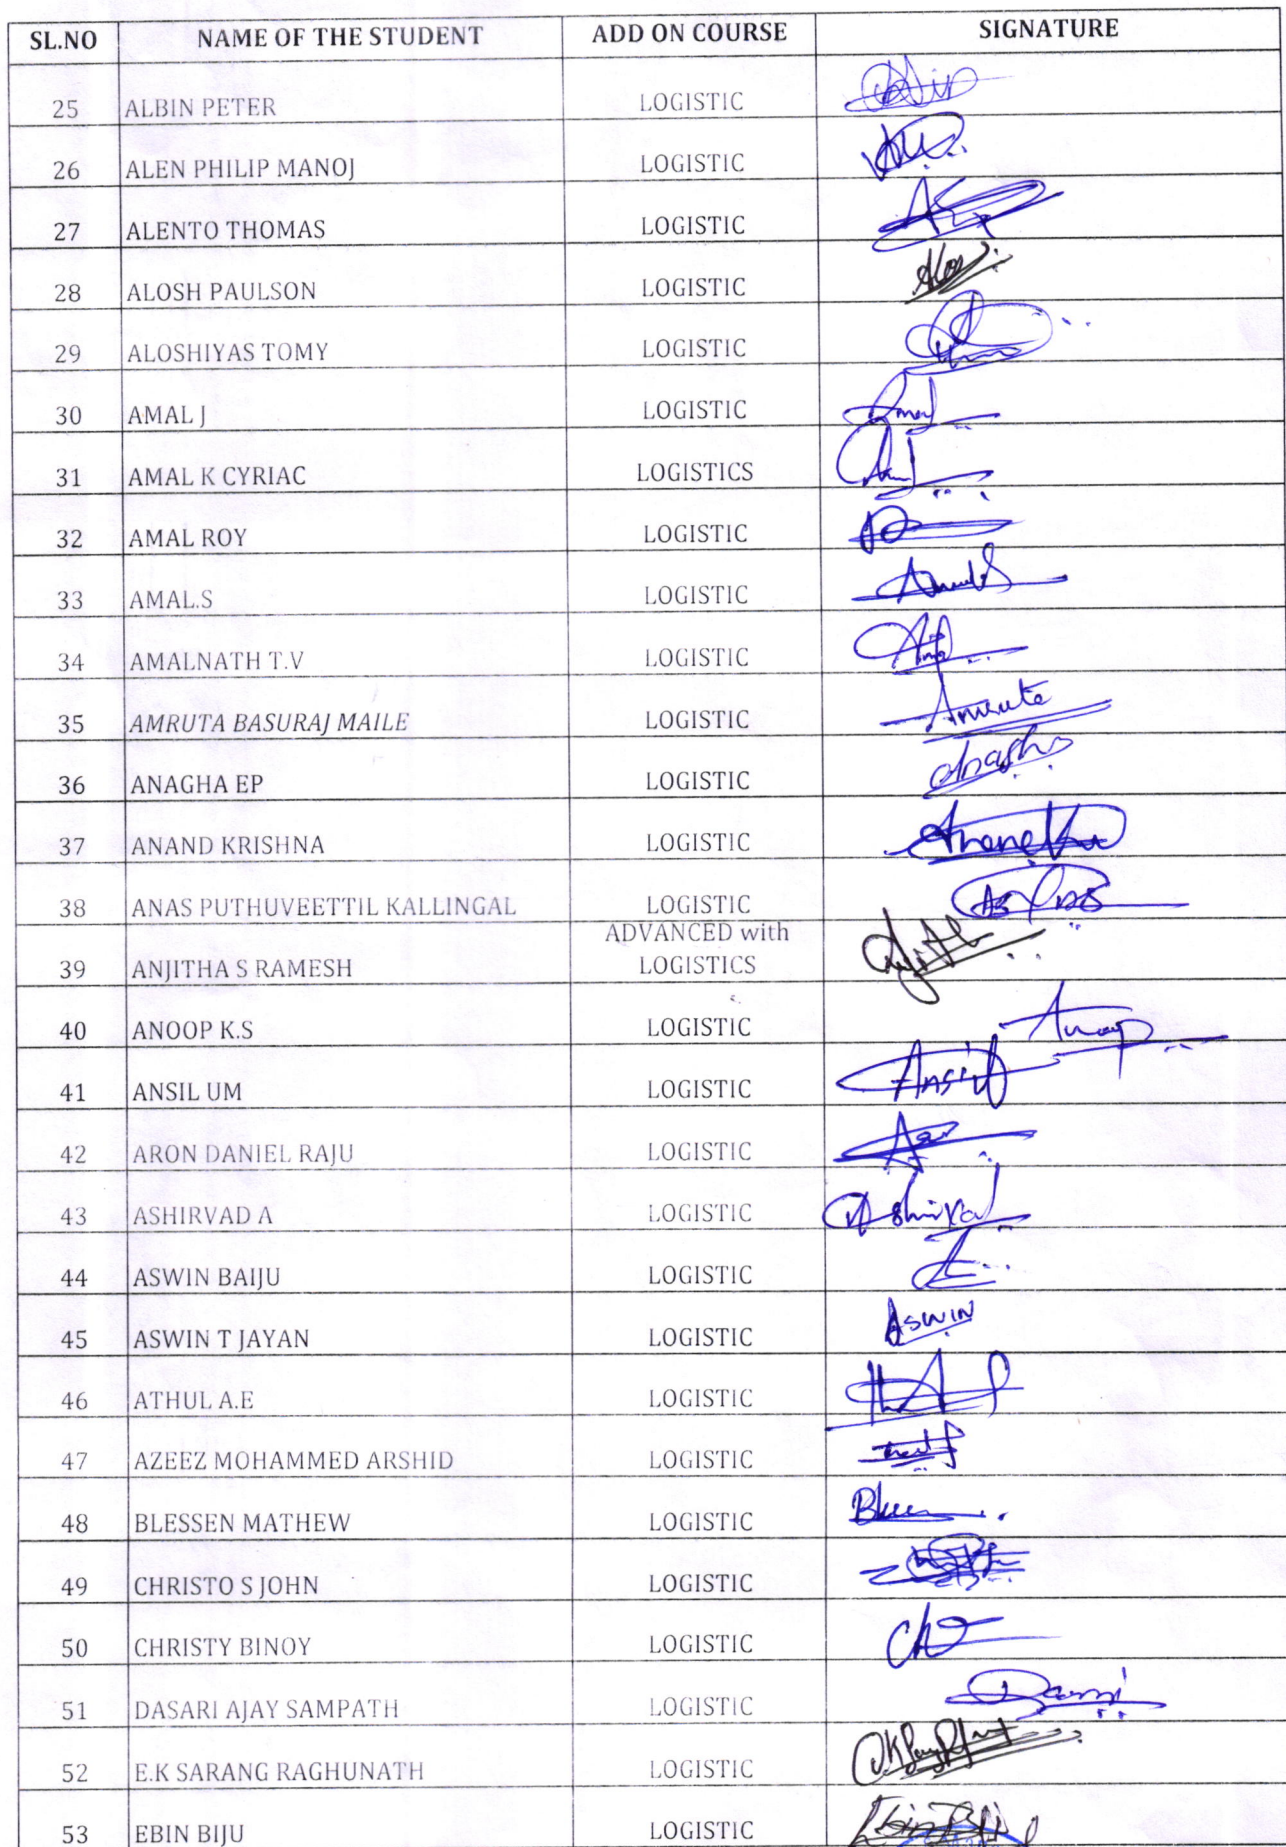 SL.NO NAME OF THE STUDENT ADD ON COURSE SIGNATURE
25 ALBIN PETER LOGISTIC
26 ALEN PHILIP MANOJ LOGISTIC
27 ALENTO THOMAS LOGISTIC
28 ALOSH PAULSON LOGISTIC
29 ALOSHIYAS TOMY LOGISTIC
30 AMAL J LOGISTIC
31 AMAL K CYRIAC LOGISTICS
32 AMAL ROY LOGISTIC
33 AMAL.S LOGISTIC
34 AMALNATH T.V LOGISTIC
35 AMRUTA BASURAJ MAILE LOGISTIC
36 ANAGHA EP LOGISTIC
37 ANAND KRISHNA LOGISTIC
38 ANAS PUTHUVEETTIL KALLINGAL LOGISTIC
ADVANCED with
39 ANJITHA S RAMESH LOGISTICS
40 ANOOP K.S LOGISTIC Anoop
41 ANSIL UM LOGISTIC Ansil
42 ARON DANIEL RAJU LOGISTIC
43 ASHIRVAD A LOGISTIC Ashirvad
44 ASWIN BAIJU LOGISTIC
45 ASWIN T JAYAN LOGISTIC ASWIN
46 ATHUL A.E LOGISTIC
47 AZEEZ MOHAMMED ARSHID LOGISTIC
48 BLESSEN MATHEW LOGISTIC
49 CHRISTO S JOHN LOGISTIC
50 CHRISTY BINOY LOGISTIC
51 DASARI AJAY SAMPATH LOGISTIC
52 E.K SARANG RAGHUNATH LOGISTIC
53 EBIN BIJU LOGISTIC